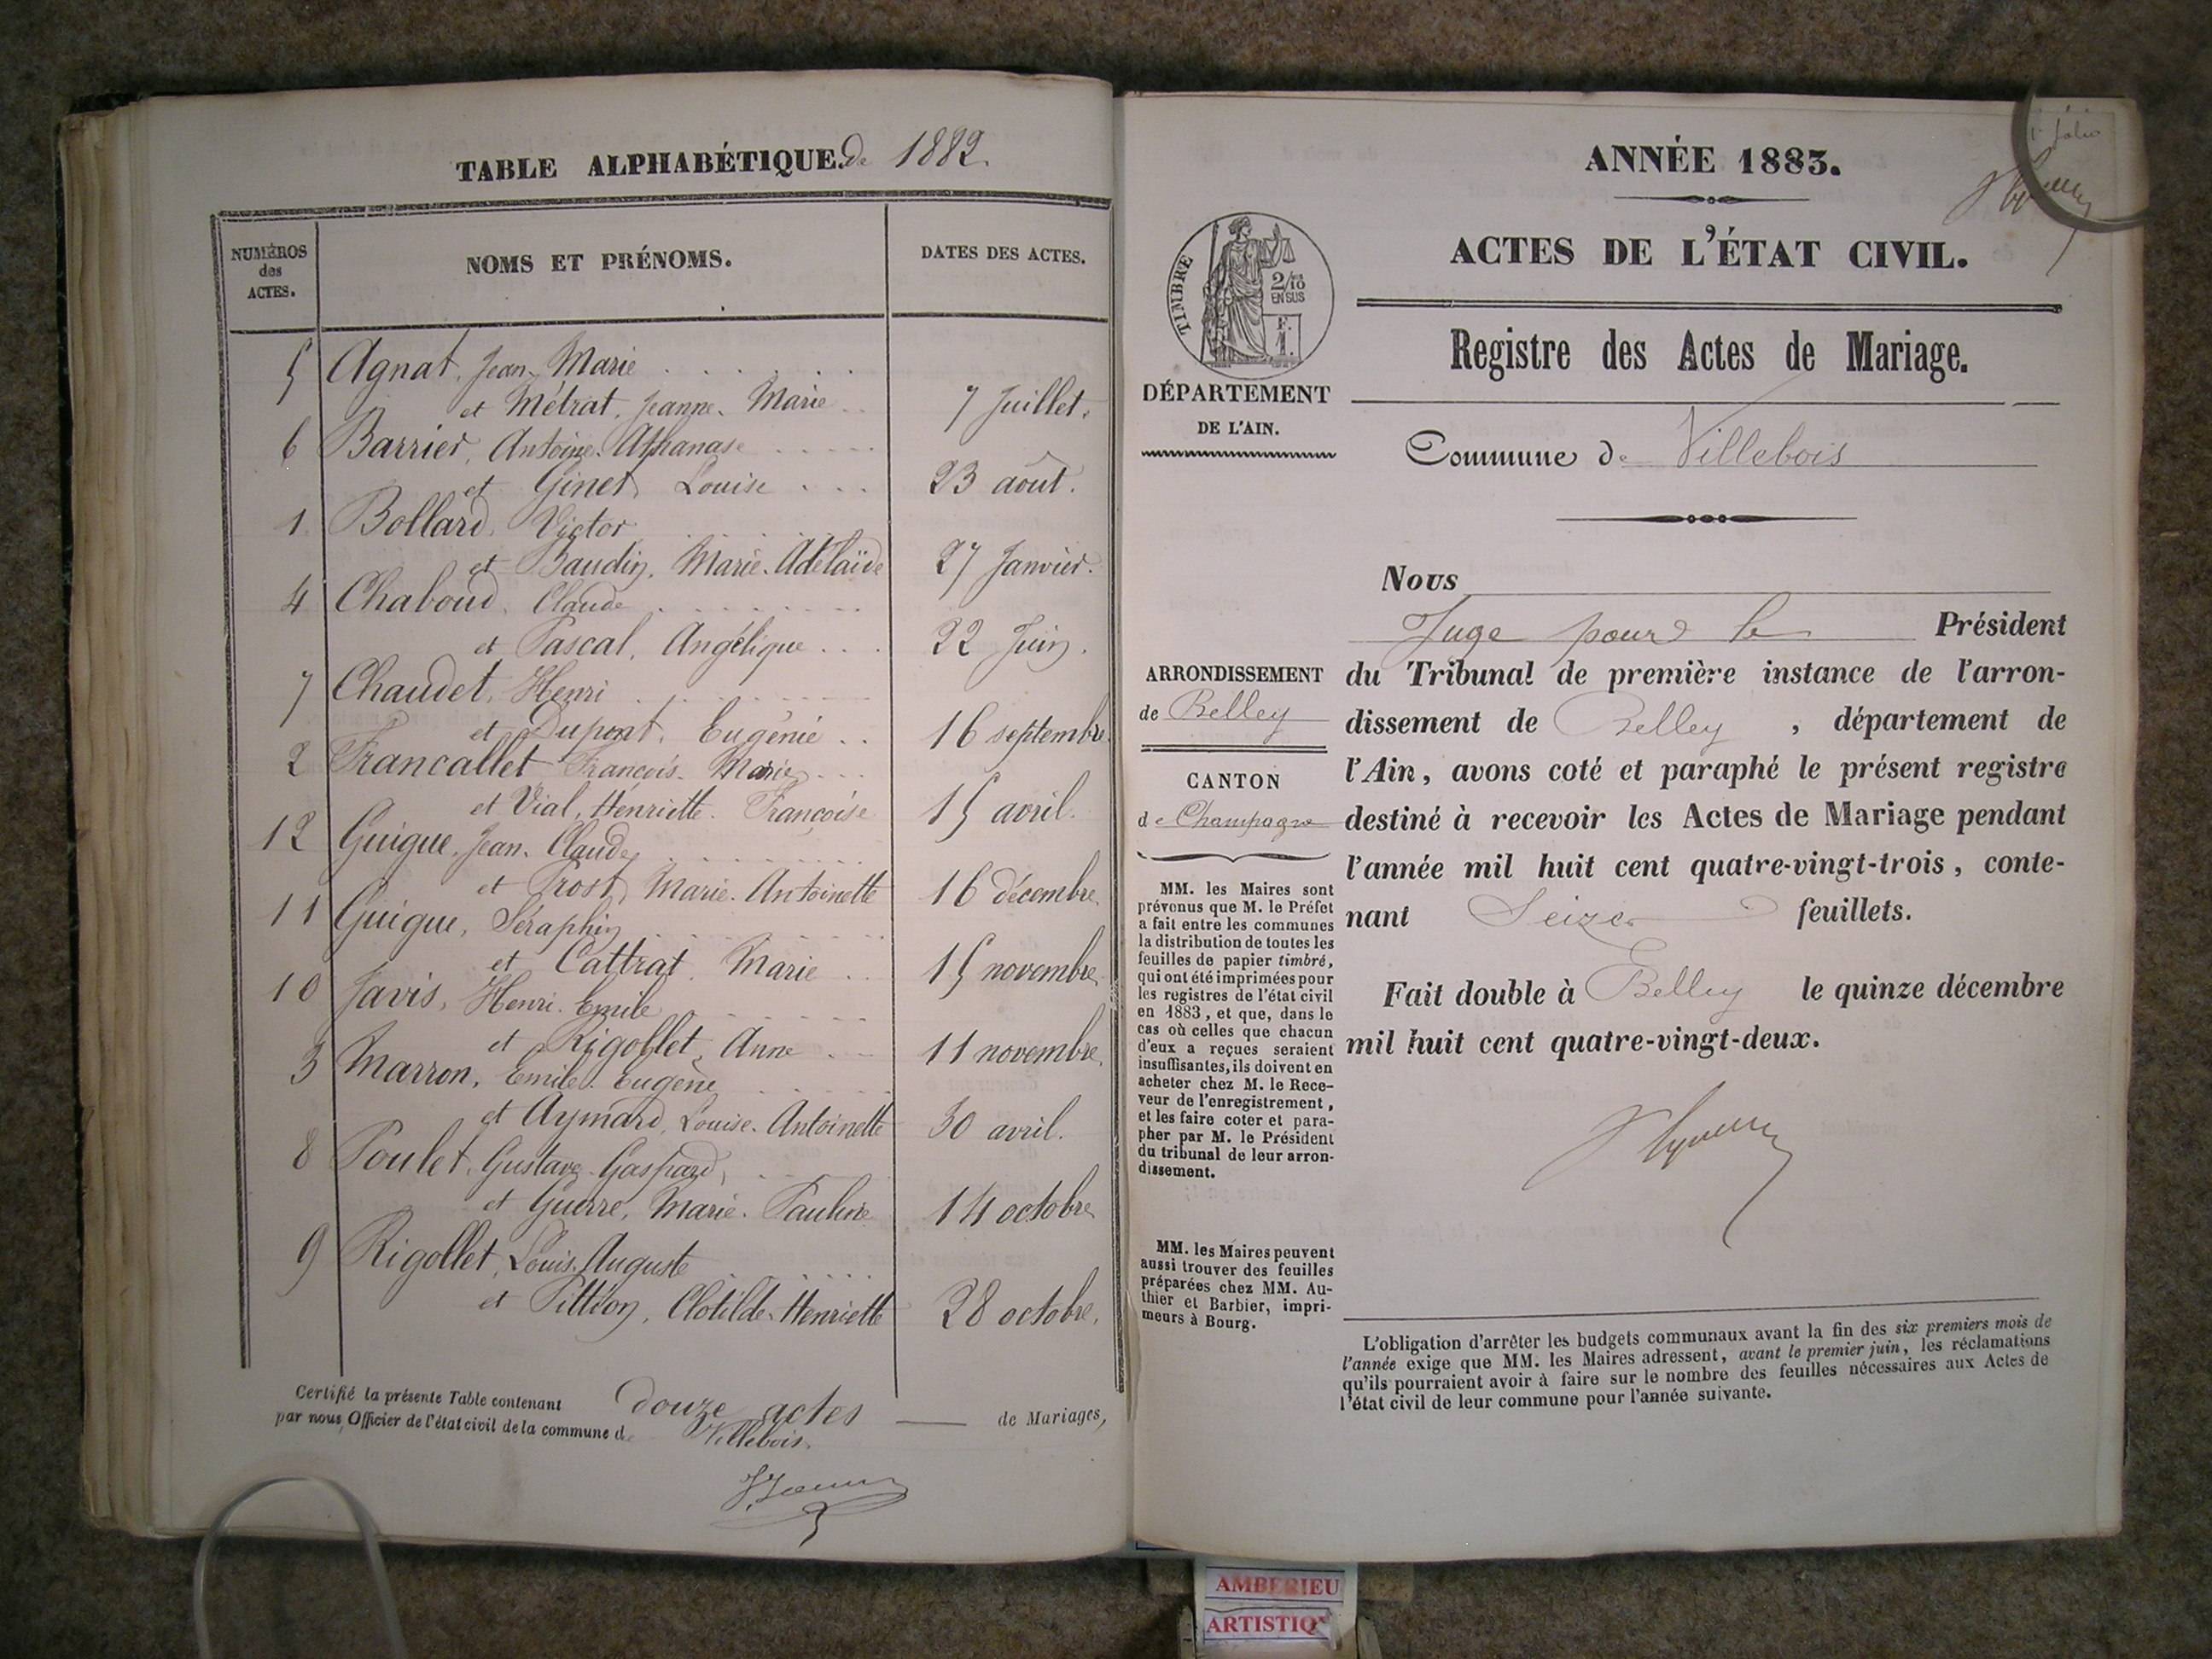 TABLE ALPHABÉTIQUE. de 1882.
NUMÉROS
des
ACTES.
NOMS ET PRÉNOMS.
DATES DES ACTES.
5 Agnat, Jean-Marie
et Métrat, Jeanne-Marie 7 Juillet.
6 Barrier, Antoine-Athanase
et Ginet, Louise 23 août.
1 Bollard, Victor
et Baudin, Marie-Adélaïde 27 Janvier.
4 Chaboud, Claude
et Pascal, Angélique 22 Juin.
7 Chaudet, Henri
et Dupont, Eugénie 16 septembre
2 Francallet François-Marie
et Vial, Henriette-Françoise 15 avril.
12 Guigue, Jean-Claude
et Prost, Marie-Antoinette 16 décembre.
11 Guigue, Séraphin
et Cattrat, Marie 15 novembre.
10 Javis, Henri-Emile
et Rigollet, Anne 11 novembre.
3 Marron, Emile-Eugène
et Aymard, Louise-Antoinette 30 avril.
8 Poulet, Gustave-Gaspard,
et Guerre, Marie-Pauline 14 octobre
9 Rigollet, Louis-Auguste
et Pittion, Clotilde-Henriette 28 octobre.
Certifié la présente Table contenant douze actes de Mariages,
par nous, Officier de l'état civil de la commune de Villebois.
1er folio
ANNÉE 1883.
ACTES DE L'ÉTAT CIVIL.
TIMBRE
2/10
EN SUS
F.
1.
Registre des Actes de Mariage.
DÉPARTEMENT
DE L'AIN.
Commune de Villebois
Nous
Juge pour le Président
du Tribunal de première instance de l'arron-
dissement de Belley, département de
l'Ain, avons coté et paraphé le présent registre
destiné à recevoir les Actes de Mariage pendant
l'année mil huit cent quatre-vingt-trois, conte-
nant Seize feuillets.
Fait double à Belley le quinze décembre
mil huit cent quatre-vingt-deux.
ARRONDISSEMENT
de Belley
CANTON
de Champagne
MM. les Maires sont
prévenus que M. le Préfet
a fait entre les communes
la distribution de toutes les
feuilles de papier timbré,
qui ont été imprimées pour
les registres de l'état civil
en 1883, et que, dans le
cas où celles que chacun
d'eux a reçues seraient
insuffisantes, ils doivent en
acheter chez M. le Rece-
veur de l'enregistrement,
et les faire coter et para-
pher par M. le Président
du tribunal de leur arron-
dissement.
MM. les Maires peuvent
aussi trouver des feuilles
préparées chez MM. Au-
thier et Barbier, impri-
meurs à Bourg.
L'obligation d'arrêter les budgets communaux avant la fin des six premiers mois de
l'année exige que MM. les Maires adressent, avant le premier juin, les réclamations
qu'ils pourraient avoir à faire sur le nombre des feuilles nécessaires aux Actes de
l'état civil de leur commune pour l'année suivante.
AMBERIEU
ARTISTIQ